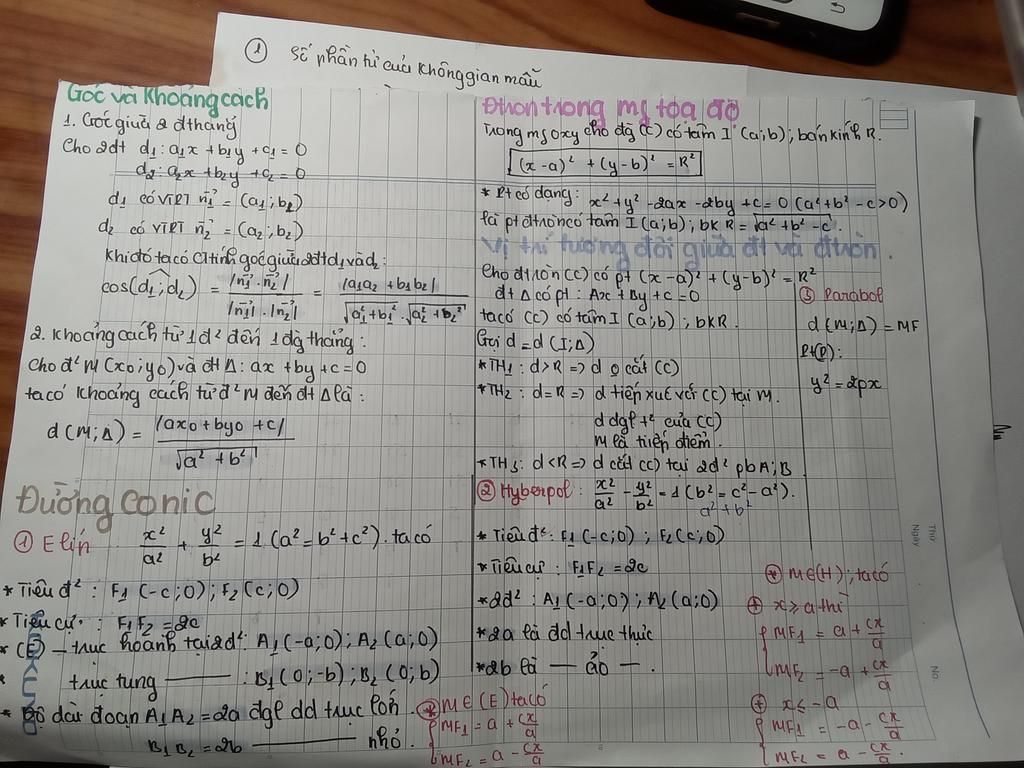 ① Số phần tử của không gian mẫu
Góc và Khoảng cách
1. Góc giữa 2 đ thẳng
Cho 2đt d₁: a₁x + b₁y + c₁ = 0
d₂: a₂x + b₂y + c₂ = 0
d₁ có VTPT n₁→ = (a₁; b₁)
d₂ có VTPT n₂→ = (a₂; b₂)
Khi đó ta có CT tính góc giữa 2đt d₁ và d₂:
cos(d₁; d₂) = |n₁→ . n₂→| / |n₁→| . |n₂→| = |a₁a₂ + b₁b₂| / √(a₁² + b₁²) . √(a₂² + b₂²)
2. Khoảng cách từ 1 đ² đến 1 đg thẳng:
Cho đ² M (x₀; y₀) và đt Δ: ax + by + c = 0
ta có khoảng cách từ đ² M đến đt Δ là:
d (M; Δ) = |ax₀ + by₀ + c| / √(a² + b²)
Đường conic
① Elip x²/a² + y²/b² = 1 (a² = b² + c²). ta có
* Tiêu đ²: F₁ (-c; 0); F₂ (c; 0)
* Tiêu cự: F₁F₂ = 2c
* (E) – trục hoành tại 2đ²: A₁ (-a; 0); A₂ (a; 0)
* trục tung —— : B₁ (0; -b); B₂ (0; b)
* Độ dài đoạn A₁A₂ = 2a đgl đd trục lớn
B₁B₂ = 2b —— nhỏ.
* M ∈ (E) ta có
{ MF₁ = a + cx/a
MF₂ = a - cx/a
Đtròn trong mp tọa độ
Trong mp oxy cho đg (C) có tâm I (a; b); bán kính R.
(x - a)² + (y - b)² = R²
* Pt có dạng: x² + y² - 2ax - 2by + c = 0 (a² + b² - c > 0)
là pt đtròn có tâm I (a; b); bk R = √(a² + b² - c).
Vị trí tương đối giữa đt và đtròn.
Cho đtròn (C) có pt (x - a)² + (y - b)² = R²
đt Δ có pt: Ax + By + c = 0
ta có (C) có tâm I (a; b); bk R.
Gọi d = d (I; Δ)
* TH₁: d > R => d o cắt (C)
* TH₂: d = R => d tiếp xúc với (C) tại M.
d đgl t² của (C)
M là tiếp điểm.
* TH₃: d < R => d cắt (C) tại 2đ² pb A; B
② Hyberpol: x²/a² - y²/b² = 1 (b² = c² - a²).
a² + b²
* Tiêu đ²: F₁ (-c; 0); F₂ (c; 0)
* Tiêu cự: F₁F₂ = 2c
* 2đ²: A₁ (-a; 0); A₂ (a; 0)
* 2a là đd trục thực
* 2b là — ảo —.
③ Parabol
d (M; Δ) = MF
Pt(P):
y² = 2px
* M ∈ (H); ta có
+ x ≥ a thì
{ MF₁ = a + cx/a
MF₂ = -a + cx/a
+ x ≤ -a
{ MF₁ = -a - cx/a
MF₂ = a - cx/a.
Thứ
Ngày
No